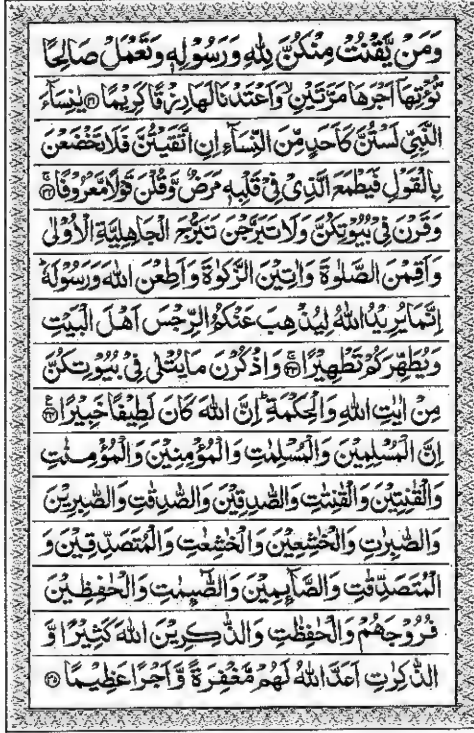 وَمَنْ يَّقْنُتْ مِنْكُنَّ لِلّٰهِ وَرَسُوْلِهٖ وَتَعْمَلْ صَالِحًا
نُّؤْتِهَآ اَجْرَهَا مَرَّتَيْنِۙ وَاَعْتَدْنَا لَهَا رِزْقًا كَرِيْمًا ۝۳۱ يٰنِسَآءَ
النَّبِيِّ لَسْتُنَّ كَاَحَدٍ مِّنَ النِّسَآءِ اِنِ اتَّقَيْتُنَّ فَلَا تَخْضَعْنَ
بِالْقَوْلِ فَيَطْمَعَ الَّذِيْ فِيْ قَلْبِهٖ مَرَضٌ وَّقُلْنَ قَوْلًا مَّعْرُوْفًا ۝۳۲
وَقَرْنَ فِيْ بُيُوْتِكُنَّ وَلَا تَبَرَّجْنَ تَبَرُّجَ الْجَاهِلِيَّةِ الْاُوْلٰى
وَاَقِمْنَ الصَّلٰوةَ وَاٰتِيْنَ الزَّكٰوةَ وَاَطِعْنَ اللّٰهَ وَرَسُوْلَهٗؕ
اِنَّمَا يُرِيْدُ اللّٰهُ لِيُذْهِبَ عَنْكُمُ الرِّجْسَ اَهْلَ الْبَيْتِ
وَيُطَهِّرَكُمْ تَطْهِيْرًا ۝۳۳ وَاذْكُرْنَ مَا يُتْلٰى فِيْ بُيُوْتِكُنَّ
مِنْ اٰيٰتِ اللّٰهِ وَالْحِكْمَةِؕ اِنَّ اللّٰهَ كَانَ لَطِيْفًا خَبِيْرًا ۝۳۴
اِنَّ الْمُسْلِمِيْنَ وَالْمُسْلِمٰتِ وَالْمُؤْمِنِيْنَ وَالْمُؤْمِنٰتِ
وَالْقٰنِتِيْنَ وَالْقٰنِتٰتِ وَالصّٰدِقِيْنَ وَالصّٰدِقٰتِ وَالصّٰبِرِيْنَ
وَالصّٰبِرٰتِ وَالْخٰشِعِيْنَ وَالْخٰشِعٰتِ وَالْمُتَصَدِّقِيْنَ وَ
الْمُتَصَدِّقٰتِ وَالصَّآئِمِيْنَ وَالصّٰٓئِمٰتِ وَالْحٰفِظِيْنَ
فُرُوْجَهُمْ وَالْحٰفِظٰتِ وَالذّٰكِرِيْنَ اللّٰهَ كَثِيْرًا وَّ
الذّٰكِرٰتِ اَعَدَّ اللّٰهُ لَهُمْ مَّغْفِرَةً وَّاَجْرًا عَظِيْمًا ۝۳۵